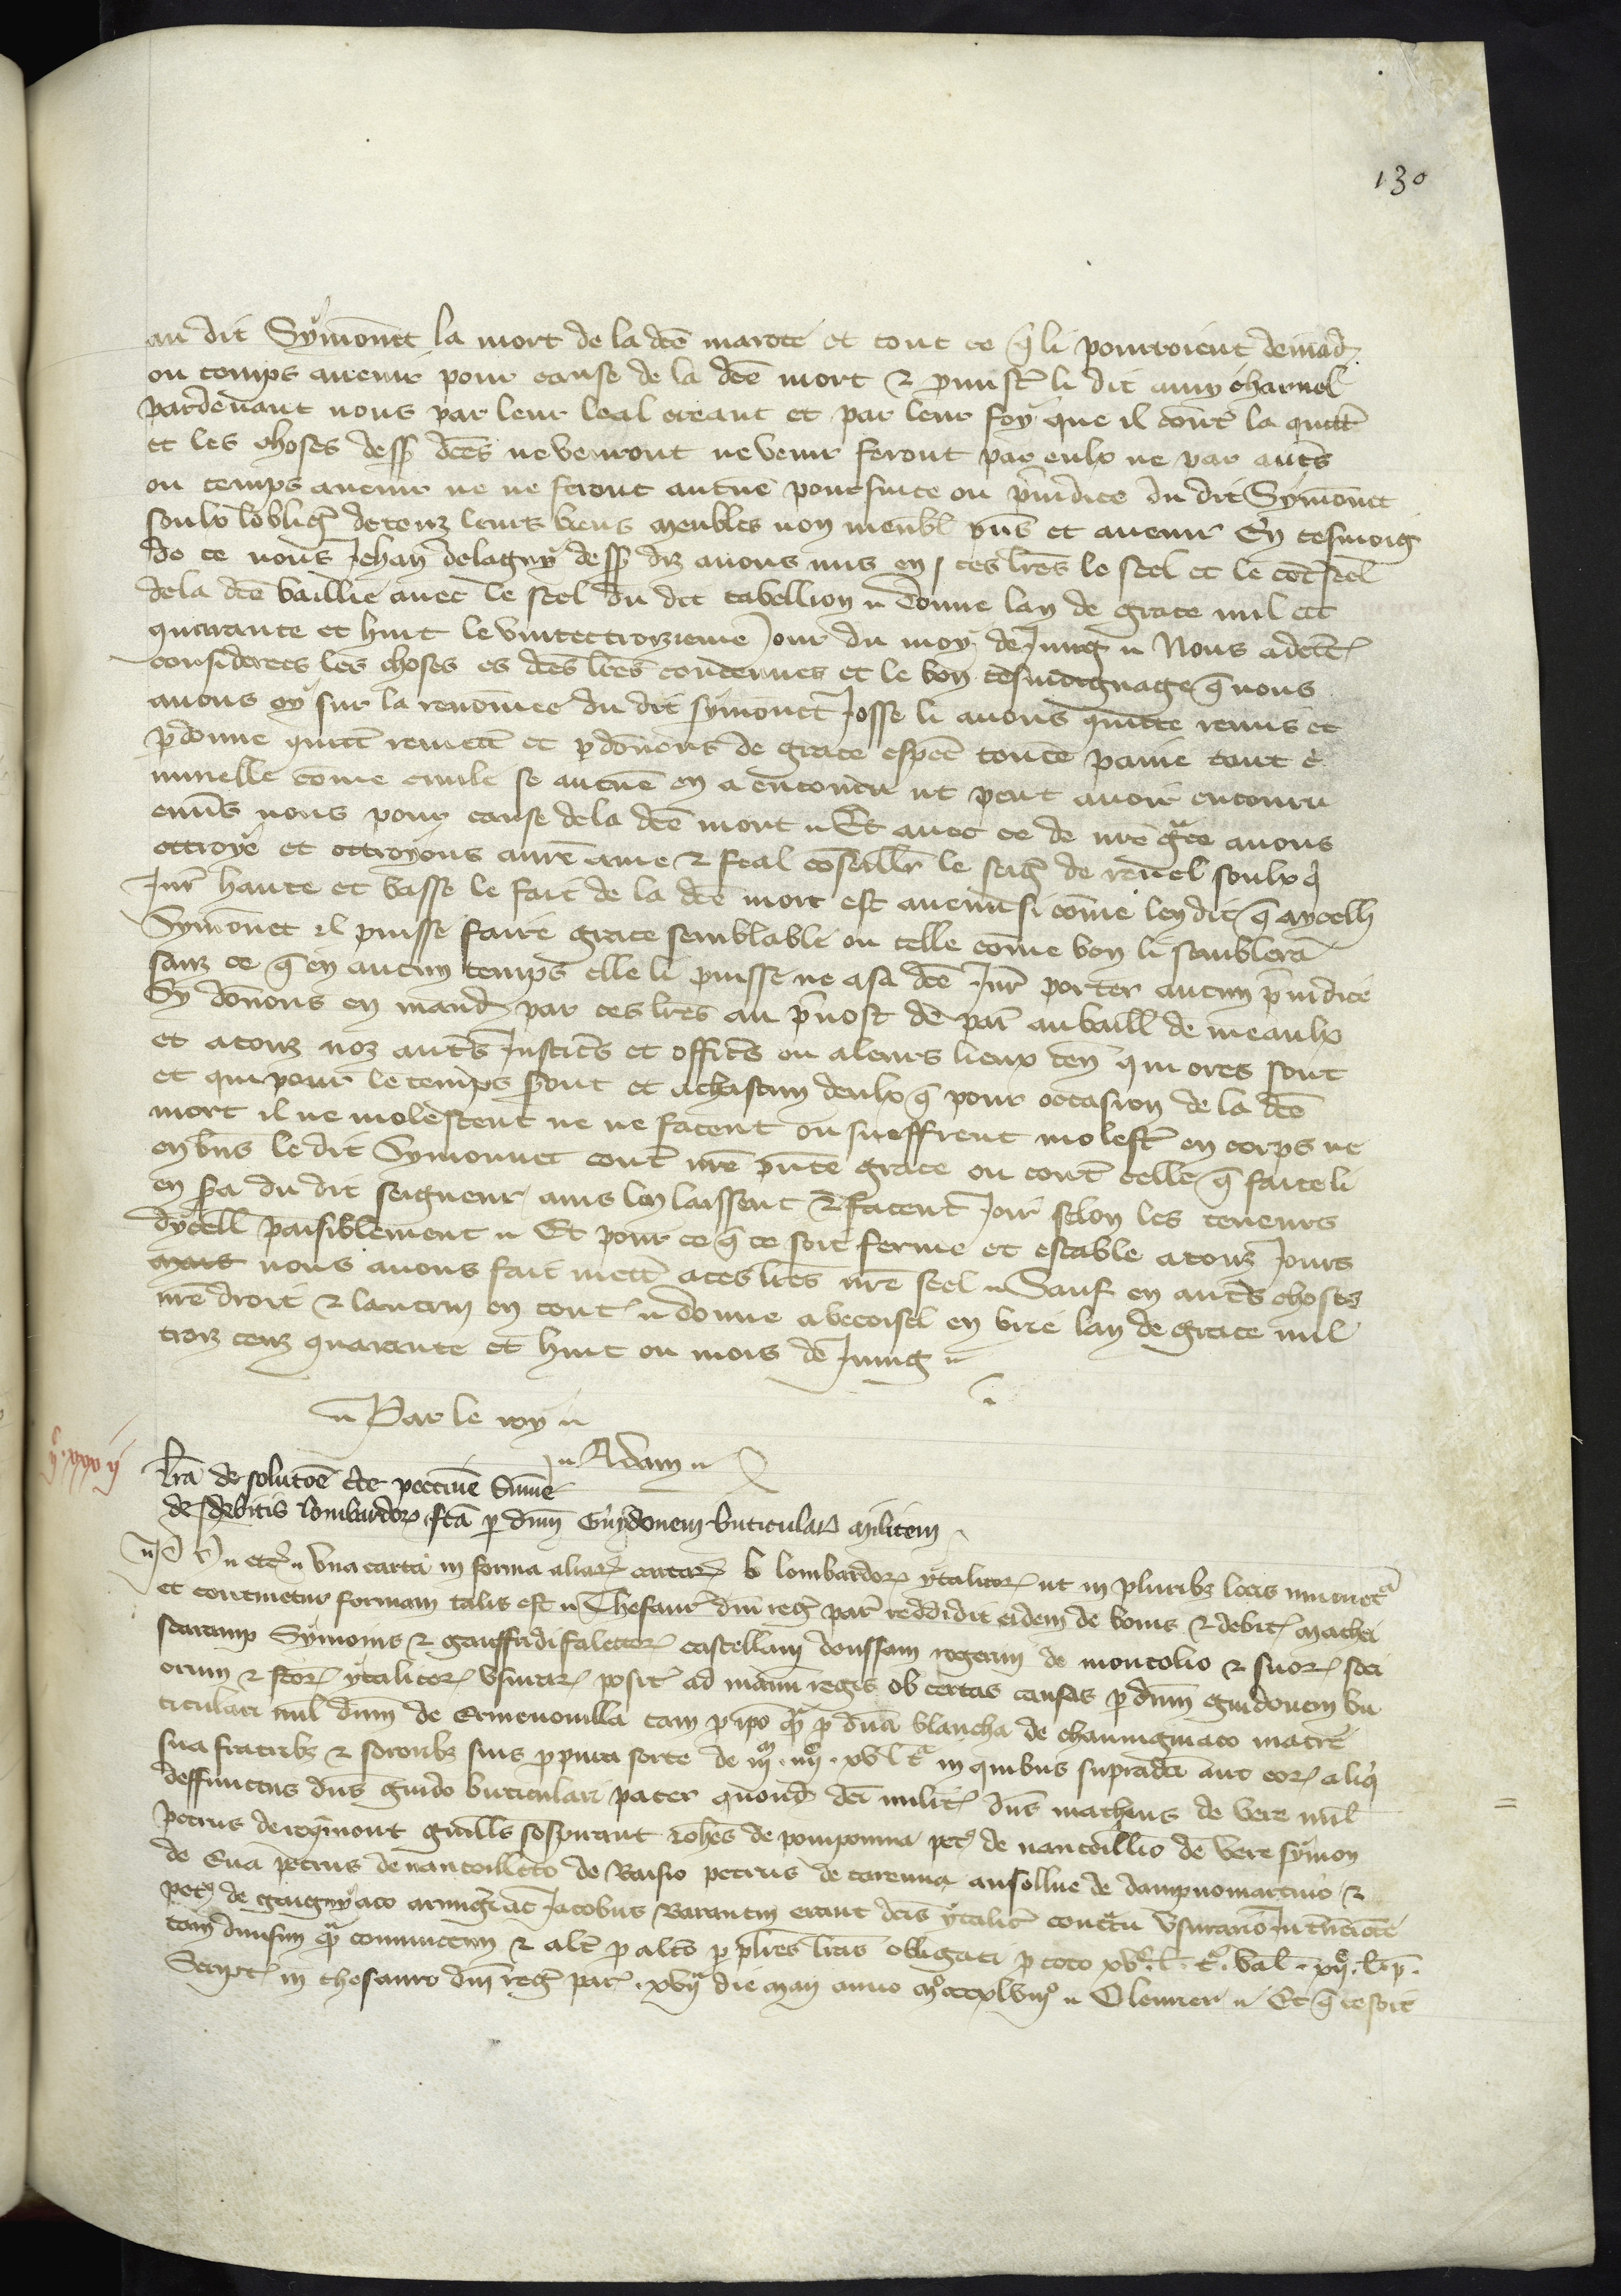 130
au dit Symonet la mort de la dce marote et tout ce q̃ li pourroient demand
ou temps avenir pour cause de la dce mort & promistr li dit amy charnel
pardevant nous par leur leal creant et par leur foy que il contr la quictt
et les choses dess dces ne venront ne venir feront par eulx ne par autrs
ou temps avenir ne ne feront aucune poursuite ou p̃iudice du dit Symonet
soulx lobligr de touz leurs biens meubles non meubl p̃ns et avenir En tesmoig
de ce nous Jehan de lagny dess diz avons mis en ces lres le scel et le contscel
de la dce baillie avec le scel du dit tabellion donne lan de grace mil ccc
quarante et huit le vintetroizieme jour du moys de Juing Nous adcrtes
considerees les choses es dces lres contenues et le bon tesmoignage q̃ nous
avons oy sur la renommee du dit symonet Josse li avons quictte remis et
p̃donne quictt remettt et p̃donons de grace especl toute paine tout c̃
minelle come civile se aucune en a encouru ut peut avoir encouru
envrs nous pour cause de la dce mort Et avec ce de nre grace avons
ottroye et ottroyons a nre ame & feal conseillr le seigr de revel soulx q̃
Jurr haute et basse le fait de la dce mort est avenu si come len dit q̃ aycelli
Symonet il puisse faire grace semblable ou telle come bon li semblera
sanz ce q̃ en aucun temps elle li puisse ne a sa dce Jurr porter aucun p̃iudice
Sy donons en mand par ces lres au p̃vost de par au baill de meaulx
et a touz noz autrs Justicrs et officrs ou a leurs lieux ten qui ores sont
et qui pour le temps sront et a chascun deulx q̃ pour occasion de la dce
mort il ne molestent ne ne facent ou sueffrent molestr en corps ne
en bns le dit Symonnet contr nre p̃nte grace ou contr celle q̃ faite li
en sra du dit seigneur ains len laissent & facent joir selon les teneurs
dycell paisiblement Et pour ce q̃ ce soit ferme et estable a touz jours
mais nous avons fait mettr a ces lres nre scel Sauf en autrs choses
nre droit & lautrui en tout donne a becoisel en brie lan de grace mil
trois cenz quarante et huit ou mois de Juing
Par le roy
Adam
Lra de solutoe cte peccuie sume
de debitis lombardor fca p dnm Guydonem buticulari militem
P etc una carta in forma aliar cartar b lombardor ytalicor ut in pluribz locis invenietr
et continetur formam talis est Thesaur dni regr par reddidit eidem de bonis & debit mathei
scaramp Symonis & gauffridi faletor castellani doussam rogerii de montolio & suor soci
orum & fctor ytalicor usurar posit ad manu regis ob certas causas p dnm guidonem bu
ticulari mil dnm de Ermenonvilla tam p ipo q̃ p dna blancha de chauvigniaco matre
sua fratribz & sororibz suis p pura sorte de iiim iiiic xv l t in quibus supradci aut eor aliq̃
deffunctus dns guido buticulari pater quond dci milit dns matheus de vere mil
petrus de reymont guills sospirant Johes de pompoinna pet de nantoillio de vere symon
de Cuia petrus de nantoilleto de Raisio petrus de tarenna ansollue de dampnomartino &
pet de gengnyaco armigri ac Jacobus Barantin erant dcis ytalicr contctu usurario
tam divisim q̃ coniunctim & altr p altro p plres lras obligati p toto xvc l t val xiic l p
Script in thesauro dni regr par xvii die maii anno mo cccxlviiio Olearier Et q̃ ce soit